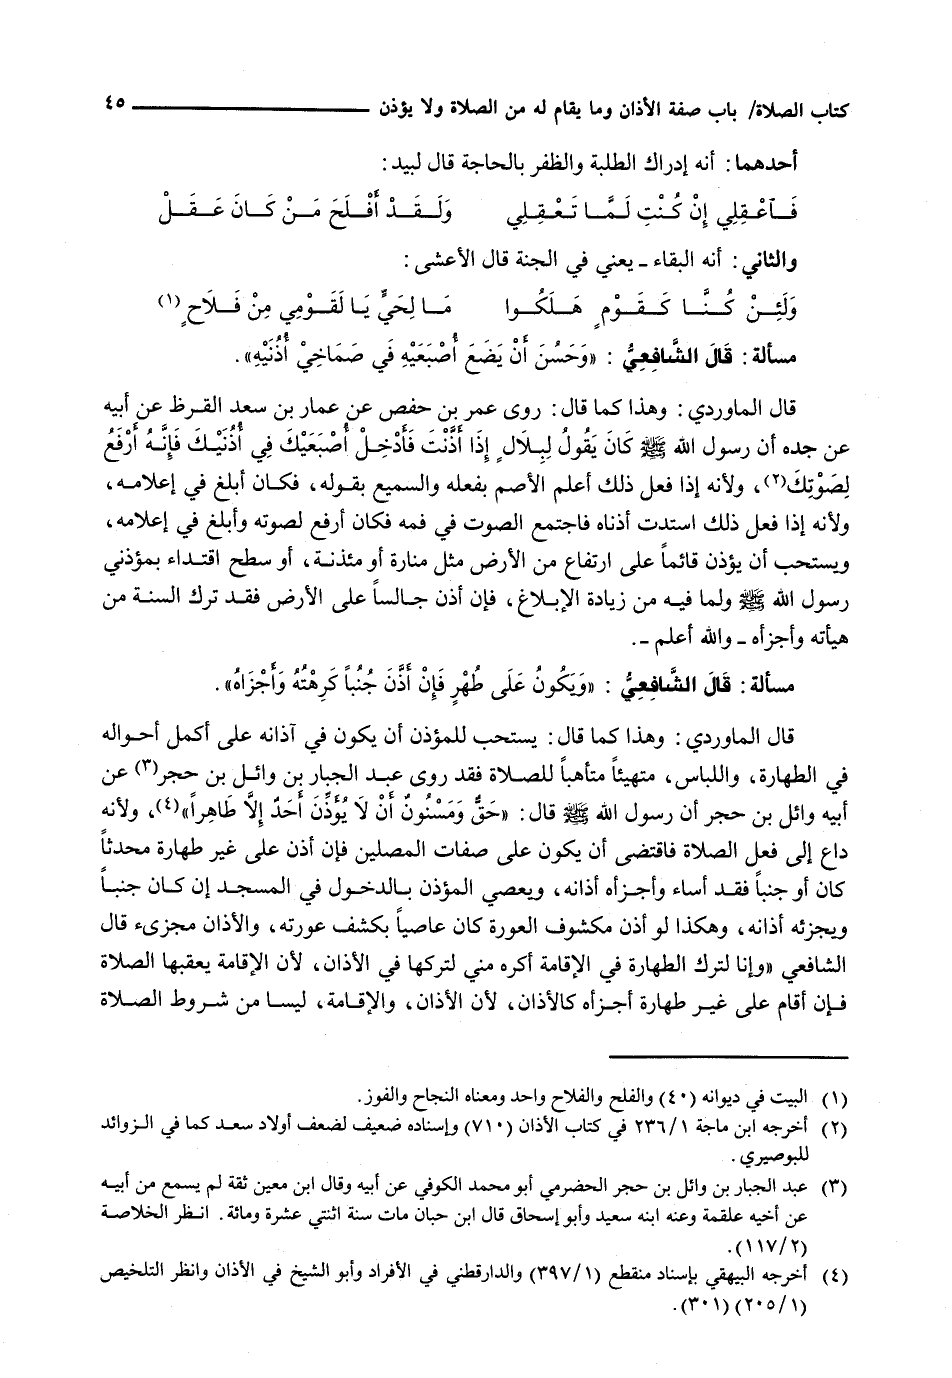 كتاب الصلاة/ باب صفة الأذان وما يقام له من الصلاة ولا يؤذن ٤٥
أحدهما: أنه إدراك الطلبة والظفر بالحاجة قال لبيد:
فَــاَعْـقِلِي إِنْ كُـنْـتِ لَـمَّـا تَـعْـقِـلِي وَلَـقَـدْ أَفْـلَحَ مَـنْ كَـانَ عَـقَـلْ
والثاني: أنه البقاء ـ يعني في الجنة قال الأعشى:
وَلَئِـنْ كُـنَّـا كَـقَـوْمٍ هَـلَكُـوا مَـا لِحَيٍّ يَـا لَقَـوْمِي مِنْ فَـلَاحٍ(١)
مسألة: قَالَ الشَّافِعِيُّ : «وَحَسُنَ أَنْ يَضَعَ أُصْبَعَيْهِ فِي صَمَاخَيْ أُذُنَيْهِ».
قال الماوردي: وهذا كما قال: روى عمر بن حفص عن عمار بن سعد القرظ عن أبيه
عن جده أن رسول الله ﷺ كَانَ يَقُولُ لِبِلَالٍ إِذَا أَذَّنْتَ فَأَدْخِلْ أُصْبَعَيْكَ فِي أُذُنَيْكَ فَإِنَّهُ أَرْفَعُ
لِصَوْتِكَ(٢)، ولأنه إذا فعل ذلك أعلم الأصم بفعله والسميع بقوله، فكان أبلغ في إعلامه،
ولأنه إذا فعل ذلك استدت أذناه فاجتمع الصوت في فمه فكان أرفع لصوته وأبلغ في إعلامه،
ويستحب أن يؤذن قائماً على ارتفاع من الأرض مثل منارة أو مئذنة، أو سطح اقتداء بمؤذني
رسول الله ﷺ ولما فيه من زيادة الإبلاغ، فإن أذن جالساً على الأرض فقد ترك السنة من
هيأته وأجزأه ـ والله أعلم ـ.
مسألة: قَالَ الشَّافِعِيُّ : «وَيَكُونُ عَلَى طُهْرٍ فَإِنْ أَذَّنَ جُنُباً كَرِهْتُهُ وَأَجْزَاهُ».
قال الماوردي: وهذا كما قال: يستحب للمؤذن أن يكون في آذانه على أكمل أحواله
في الطهارة، واللباس، متهيئاً متأهباً للصلاة فقد روى عبد الجبار بن وائل بن حجر(٣) عن
أبيه وائل بن حجر أن رسول الله ﷺ قال: «حَقٌّ وَمَسْنُونٌ أَنْ لَا يُؤَذِّنَ أَحَدٌ إِلَّا طَاهِراً»(٤)، ولأنه
داع إلى فعل الصلاة فاقتضى أن يكون على صفات المصلين فإن أذن على غير طهارة محدثاً
كان أو جنباً فقد أساء وأجزأه أذانه، ويعصي المؤذن بالدخول في المسجد إن كان جنباً
ويجزئه أذانه، وهكذا لو أذن مكشوف العورة كان عاصياً بكشف عورته، والأذان مجزىء قال
الشافعي «وإنا لترك الطهارة في الإقامة أكره مني لتركها في الأذان، لأن الإقامة يعقبها الصلاة
فإن أقام على غير طهارة أجزأه كالأذان، لأن الأذان، والإقامة، ليسا من شروط الصلاة
(١) البيت في ديوانه (٤٠) والفلح والفلاح واحد ومعناه النجاح والفوز.
(٢) أخرجه ابن ماجة ٢٣٦/١ في كتاب الأذان (٧١٠) وإسناده ضعيف لضعف أولاد سعد كما في الزوائد
للبوصيري.
(٣) عبد الجبار بن وائل بن حجر الحضرمي أبو محمد الكوفي عن أبيه وقال ابن معين ثقة لم يسمع من أبيه
عن أخيه علقمة وعنه ابنه سعيد وأبو إسحاق قال ابن حبان مات سنة اثنتي عشرة ومائة. انظر الخلاصة
(١١٧/٢).
(٤) أخرجه البيهقي بإسناد منقطع (٣٩٧/١) والدارقطني في الأفراد وأبو الشيخ في الأذان وانظر التلخيص
(٢٠٥/١) (٣٠١).